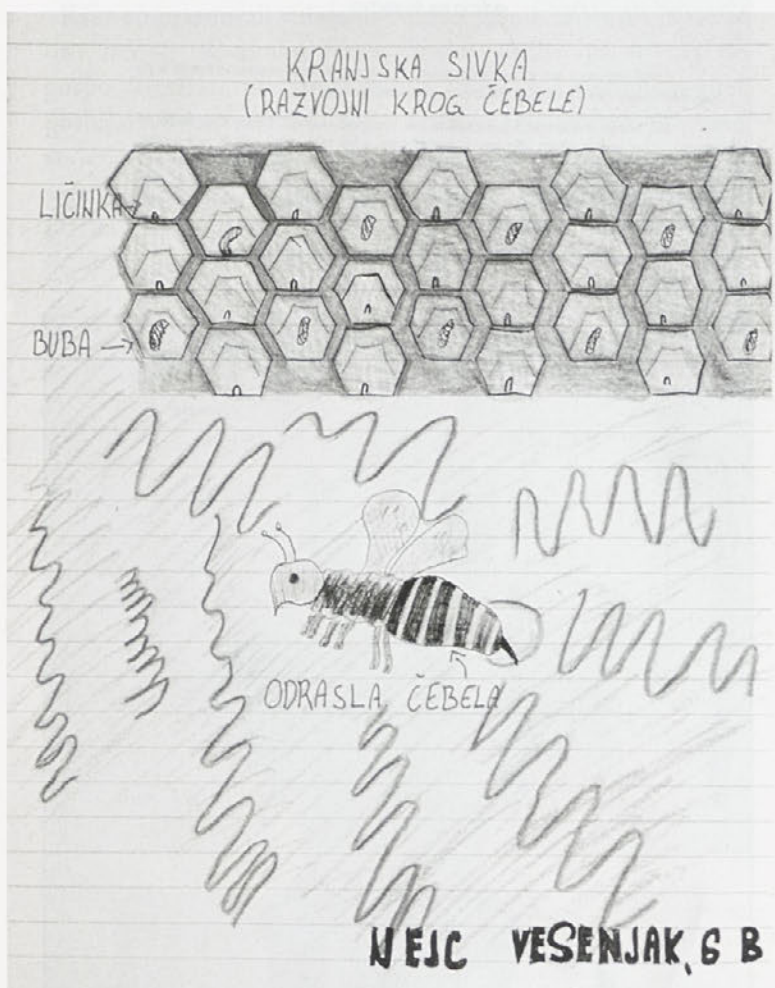 KRANJSKA SIVKA
(RAZVOJNI KROG ČEBELE)
LIČINKA
BUBA
ODRASLA ČEBELA
NEJC VESENJAK, 6 B